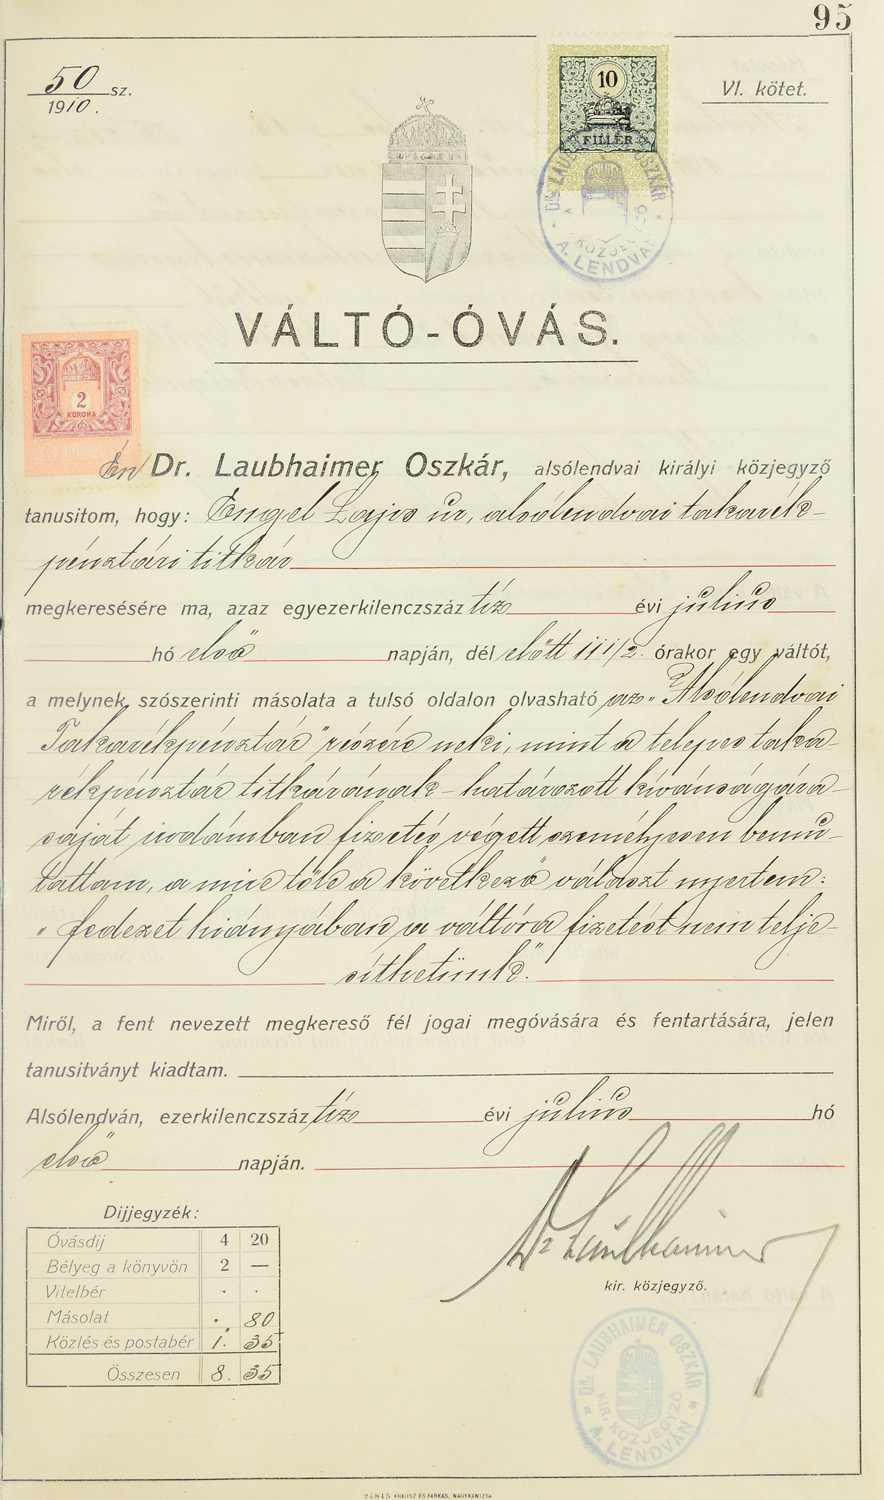 95
50 sz.
1910.
VI. kötet.
10
FILLÉR
DR. LAUBHAIMER OSZKÁR
KIR. KÖZJEGYZŐ
A. LENDVÁN
VÁLTÓ-ÓVÁS.
2
KORONA
Én Dr. Laubhaimer Oszkár, alsólendvai királyi közjegyző
tanusitom, hogy: Engel Lajos úr, alsólendvai takarék-
pénztári titkár
megkeresésére ma, azaz egyezerkilenczszáz tíz évi július
hó első napján, dél előtt órakor egy váltót,
a melynek szószerinti másolata a tulsó oldalon olvasható az „Alsólendvai
Takarékpénztár" részére neki, mint a telepes taka-
rékpénztár titkárának - határozott kívánságára -
saját irodámban fizetés végett személyesen bemu-
tattam, a mire tőle a következő választ nyertem:
„fedezet hiányában a váltóra fizetést nem telje-
síthetünk".
Miről, a fent nevezett megkereső fél jogai megóvására és fentartására, jelen
tanusitványt kiadtam.
Alsólendván, ezerkilenczszáz tíz évi július hó
első napján.
Dr Laubhaimer
kir. közjegyző.
Dijjegyzék:
Óvásdij 4 20
Bélyeg a könyvön 2 —
Vitelbér . .
Másolat . 80
Közlés és postabér 1. 35
Összesen 8. 35
DR. LAUBHAIMER OSZKÁR
KIR. KÖZJEGYZŐ
A. LENDVÁN
KRAUSZ ÉS FARKAS, NAGYKANIZSA